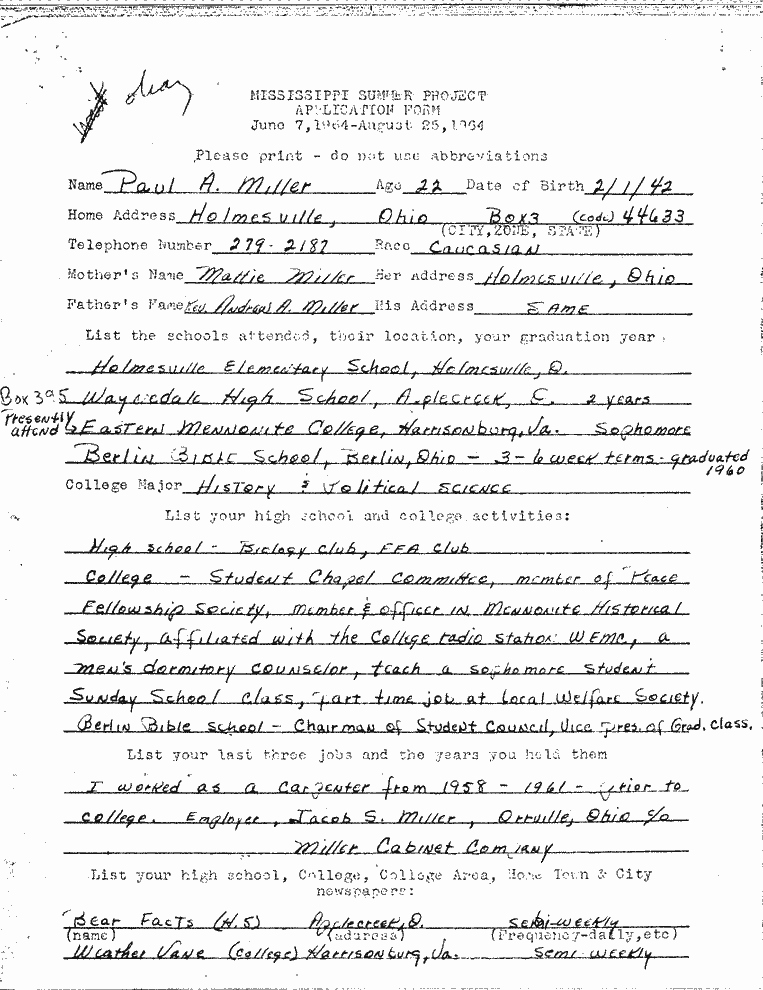 okay
MISSISSIPPI SUMMER PROJECT
APPLICATION FORM
June 7,1964-August 25,1964
Please print - do not use abbreviations
Name Paul A. Miller Age 22 Date of Birth 2/1/42
Home Address Holmesville, Ohio Box 3 (code) 44633
(CITY,ZONE, STATE)
Telephone Number 279-2187 Race Caucasian
Mother's Name Mattie Miller Her Address Holmesville, Ohio
Father's Name Rev. Andrew A. Miller His Address Same
List the schools attended, their location, your graduation year.
Holmesville Elementary School, Holmesville, O.
Box 395 Waynedale High School, Applecreek, O. 2 years
Presently attend Eastern Mennonite College, Harrisonburg, Va. Sophomore
Berlin Bible School, Berlin, Ohio - 3-6 week terms - graduated 1960
College Major History & Political Science
List your high school and college activities:
High school - Biology Club, FFA Club
College - Student Chapel Committee, member of Peace
Fellowship Society, member & officer in Mennonite Historical
Society, affiliated with the College radio station WEMC, a
men's dormitory counselor, teach a sophomore student
Sunday School class, part time job at local Welfare Society.
Berlin Bible School - Chairman of Student Council, Vice Pres. of Grad. Class.
List your last three jobs and the years you held them
I worked as a carpenter from 1958 - 1961 - prior to
college. Employer, Jacob S. Miller, Orrville, Ohio c/o
Miller Cabinet Company
List your high school, College, College Area, Home Town & City
newspapers:
Bear Facts (H.S) Applecreek, O. semi-weekly
(name) (address) (Frequency-daily,etc)
Weather Vane (College) Harrisonburg, Va. Semi weekly